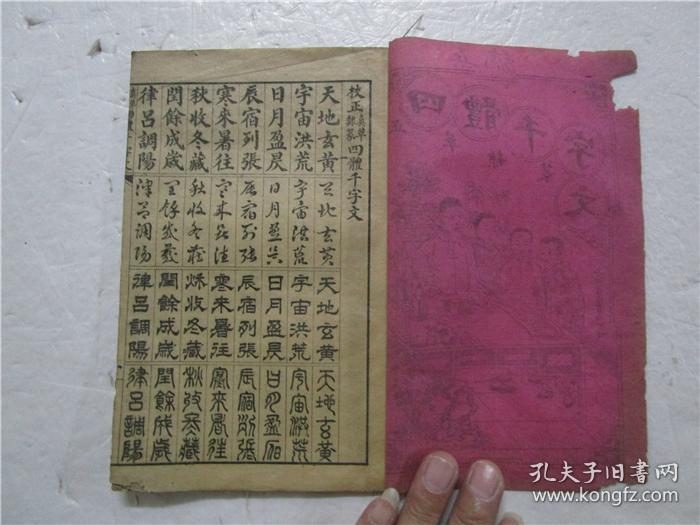 四體千字文
校正真草隸篆四體千字文
天地玄黃 天地玄黃 天地玄黃 天地玄黃
宇宙洪荒 宇宙洪荒 宇宙洪荒 宇宙洪荒
日月盈昃 日月盈昃 日月盈昃 日月盈昃
辰宿列張 辰宿列張 辰宿列張 辰宿列張
寒來暑往 寒來暑往 寒來暑往 寒來暑往
秋收冬藏 秋收冬藏 秋收冬藏 秋收冬藏
閏餘成歲 閏餘成歲 閏餘成歲 閏餘成歲
律呂調陽 律呂調陽 律呂調陽 律呂調陽
孔夫子旧书网
www.kongfz.com